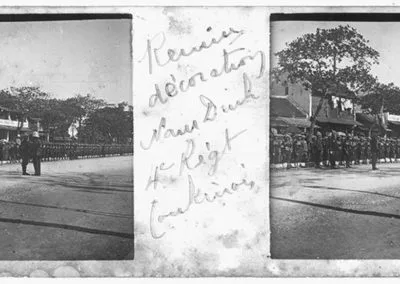 Remise
décoration
Nam Dinh
4e Régt
Tonkinois